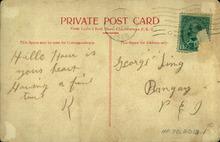 PRIVATE POST CARD
This Space may be used for Correspondence
This Space is for Address only.
Hello How is
your heart
Having a fine
time
K
George King
Bungay
P E I